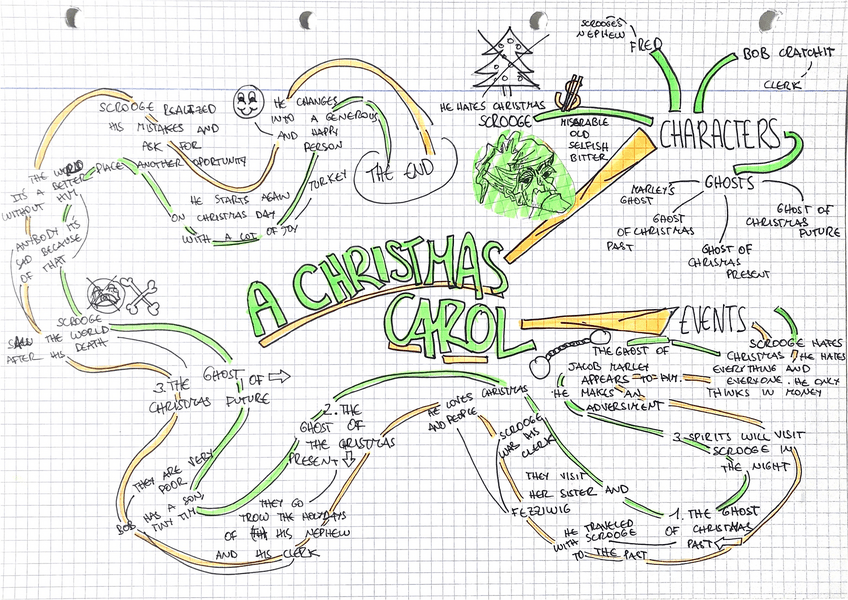 A CHRISTMAS
CAROL
CHARACTERS
FRED
SCROOGE'S
NEPHEW
BOB CRATCHIT
CLERK
GHOSTS
MARLEY'S
GHOST
GHOST
OF CHRISTMAS
PAST
GHOST OF
CHRISMAS
PRESENT
GHOST OF
CHRISTMAS
FUTURE
HE HATES CHRISTMAS
SCROOGE
MISERABLE
OLD
SELFISH
BITTER
EVENTS
SCROOGE HATES
CHRISTMAS, HE HATES
EVERYTHING AND
EVERYONE. HE ONLY
THINKS IN MONEY
THE GHOST OF
JACOB MARLEY
APPEARS TO HIM.
HE MAKES AN
ADVERSIMENT
3 SPIRITS WILL VISIT
SCROOGE IN
THE NIGHT
1. THE GHOST
OF CHRISTMAS
PAST
HE TRAVELED
WITH SCROOGE
TO THE PAST
THEY VISIT
HER SISTER AND
FEZZIWIG
SCROOGE
WAS HIS
CLERK
HE LOVES CHRISTMAS
AND PEOPLE
2. THE
GHOST OF
THE CHRISTMAS
PRESENT
THEY GO
TROW THE HOLYDAYS
OF HIS NEPHEW
AND HIS CLERK
BOB HAS A SON,
TINY TIM
THEY ARE VERY
POOR
3. THE GHOST OF
CHRISTMAS FUTURE
SCROOGE
SAW THE WORLD
AFTER HIS DEATH
ANYBODY IT'S
SAD BECAUSE
OF THAT
THE WORLD
IT'S A BETTER PLACE
WITHOUT HIM
SCROOGE REALIZED
HIS MISTAKES AND
ASK FOR
ANOTHER OPORTUNITY
HE STARTS AGAIN
ON CHRISTMAS DAY
WITH A LOT OF JOY
TURKEY
HE CHANGES
INTO A GENEROUS
AND HAPPY
PERSON
THE END